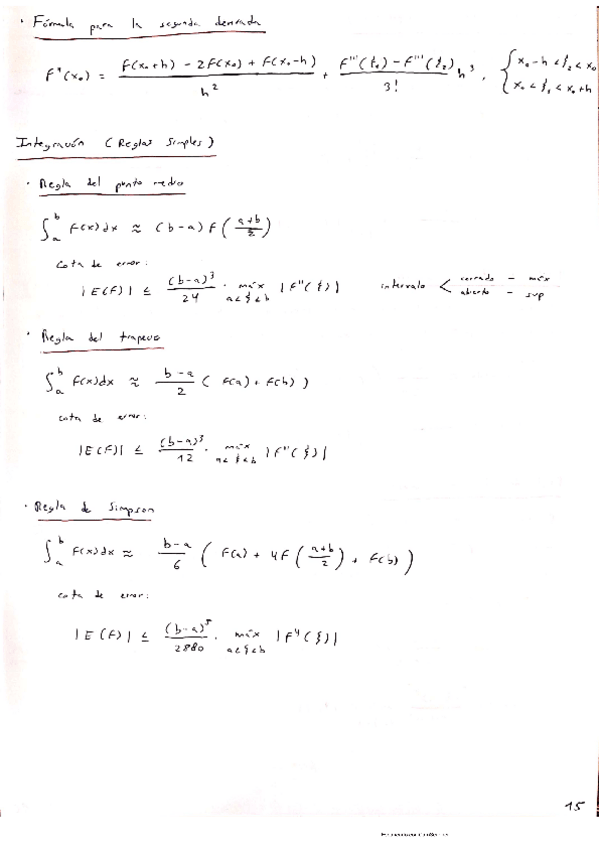 · Fórmula para la segunda derivada
F''(x₀) = (F(x₀+h) - 2F(x₀) + F(x₀-h)) / h² + (F'''(ξ₁) - F'''(ξ₂)) / 3! h³, { x₀-h < ξ₂ < x₀
x₀ < ξ₁ < x₀+h
Integración (Reglas simples)
· Regla del punto medio
∫ₐᵇ F(x)dx ≈ (b-a) F((a+b)/2)
cota de error:
|E(F)| ≤ (b-a)³/24 · máx a<ξ<b |F''(ξ)| intervalo < cerrado - máx
abierto - sup
· Regla del trapecio
∫ₐᵇ F(x)dx ≈ (b-a)/2 (F(a) + F(b))
cota de error:
|E(F)| ≤ (b-a)³/12 · máx a<ξ<b |F''(ξ)|
· Regla de Simpson
∫ₐᵇ F(x)dx ≈ (b-a)/6 (F(a) + 4F((a+b)/2) + F(b))
cota de error:
|E(F)| ≤ (b-a)⁵/2880 · máx a<ξ<b |F⁴(ξ)|
15